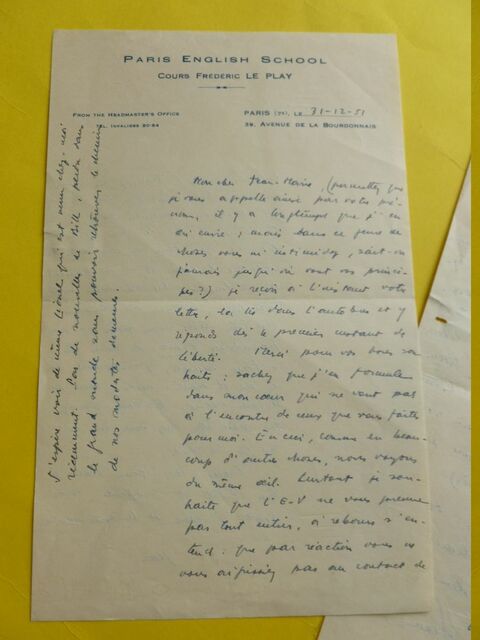 PARIS ENGLISH SCHOOL
COURS FRÉDÉRIC LE PLAY
FROM THE HEADMASTER'S OFFICE
INVALIDES 20-24
PARIS (7E), LE 31-12-51
39, AVENUE DE LA BOURDONNAIS
Mon cher Jean-Marie, (permettez que
je vous appelle ainsi par votre pré-
nom, il y a longtemps que j'en
ai envie ; mais dans ce genre de
choses vous m'intimidez, sait-on
jamais jusqu'où vont vos princi-
pes ?) je reçois à l'instant votre
lettre, la lis dans l'autobus et y
réponds dès le premier instant de
liberté. Merci pour vos bons sou-
haits : sachez que j'en formule
dans mon cœur qui ne vont pas
à l'encontre de ceux que vous faites
pour moi. En ceci, comme en beau-
coup d'autres choses, nous voyons
du même œil. Surtout je sou-
haite que l'E-V ne vous prenne
pas tout entier, à rebours s'en-
tend : que par réaction vous ne
vous pas au contact de
J'espère voir de même Lionel qui est venu chez moi
récemment. Pas de nouvelles de Bill, perdu dans
le grand monde sans pouvoir retrouver le chemin
de nos modestes demeures.